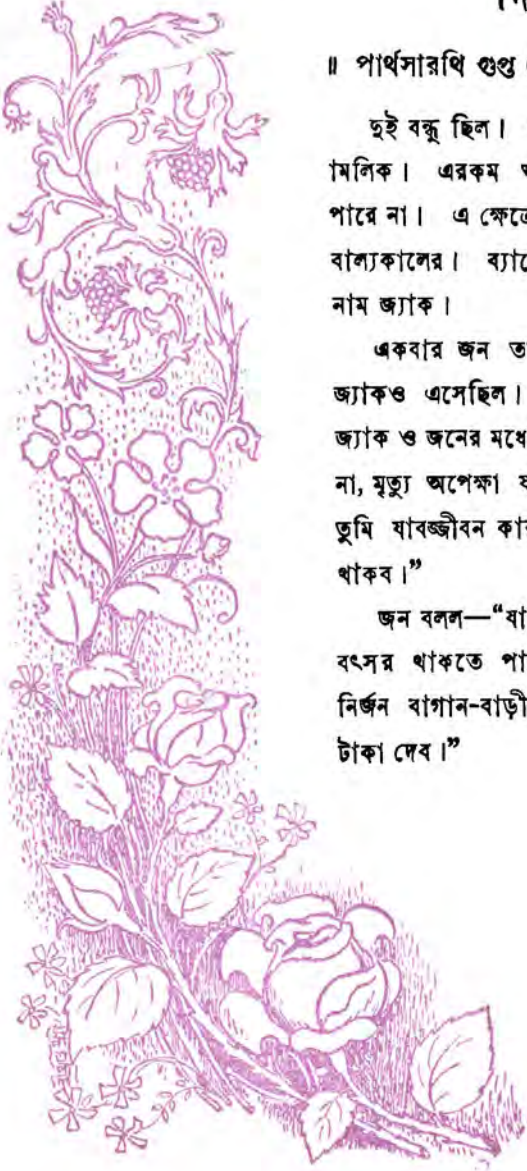 ॥ পার্থসারথি গুপ্ত
দুই বন্ধু ছিল।
মালিক। এরকম
পারে না। এ ক্ষেত্রে
বাল্যকালের।
নাম জ্যাক।
একবার জন
জ্যাকও এসেছিল।
জ্যাক ও জনের মধ্যে
না, মৃত্যু অপেক্ষা
তুমি যাবজ্জীবন
থাকব।”
জন বলল—“
বৎসর থাকতে
নির্জন বাগান-বাড়ী
টাকা দেব।”